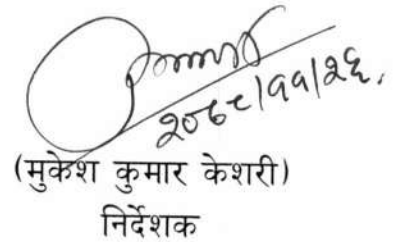 २०७९/११/२६.
(मुकेश कुमार केशरी)
निर्देशक